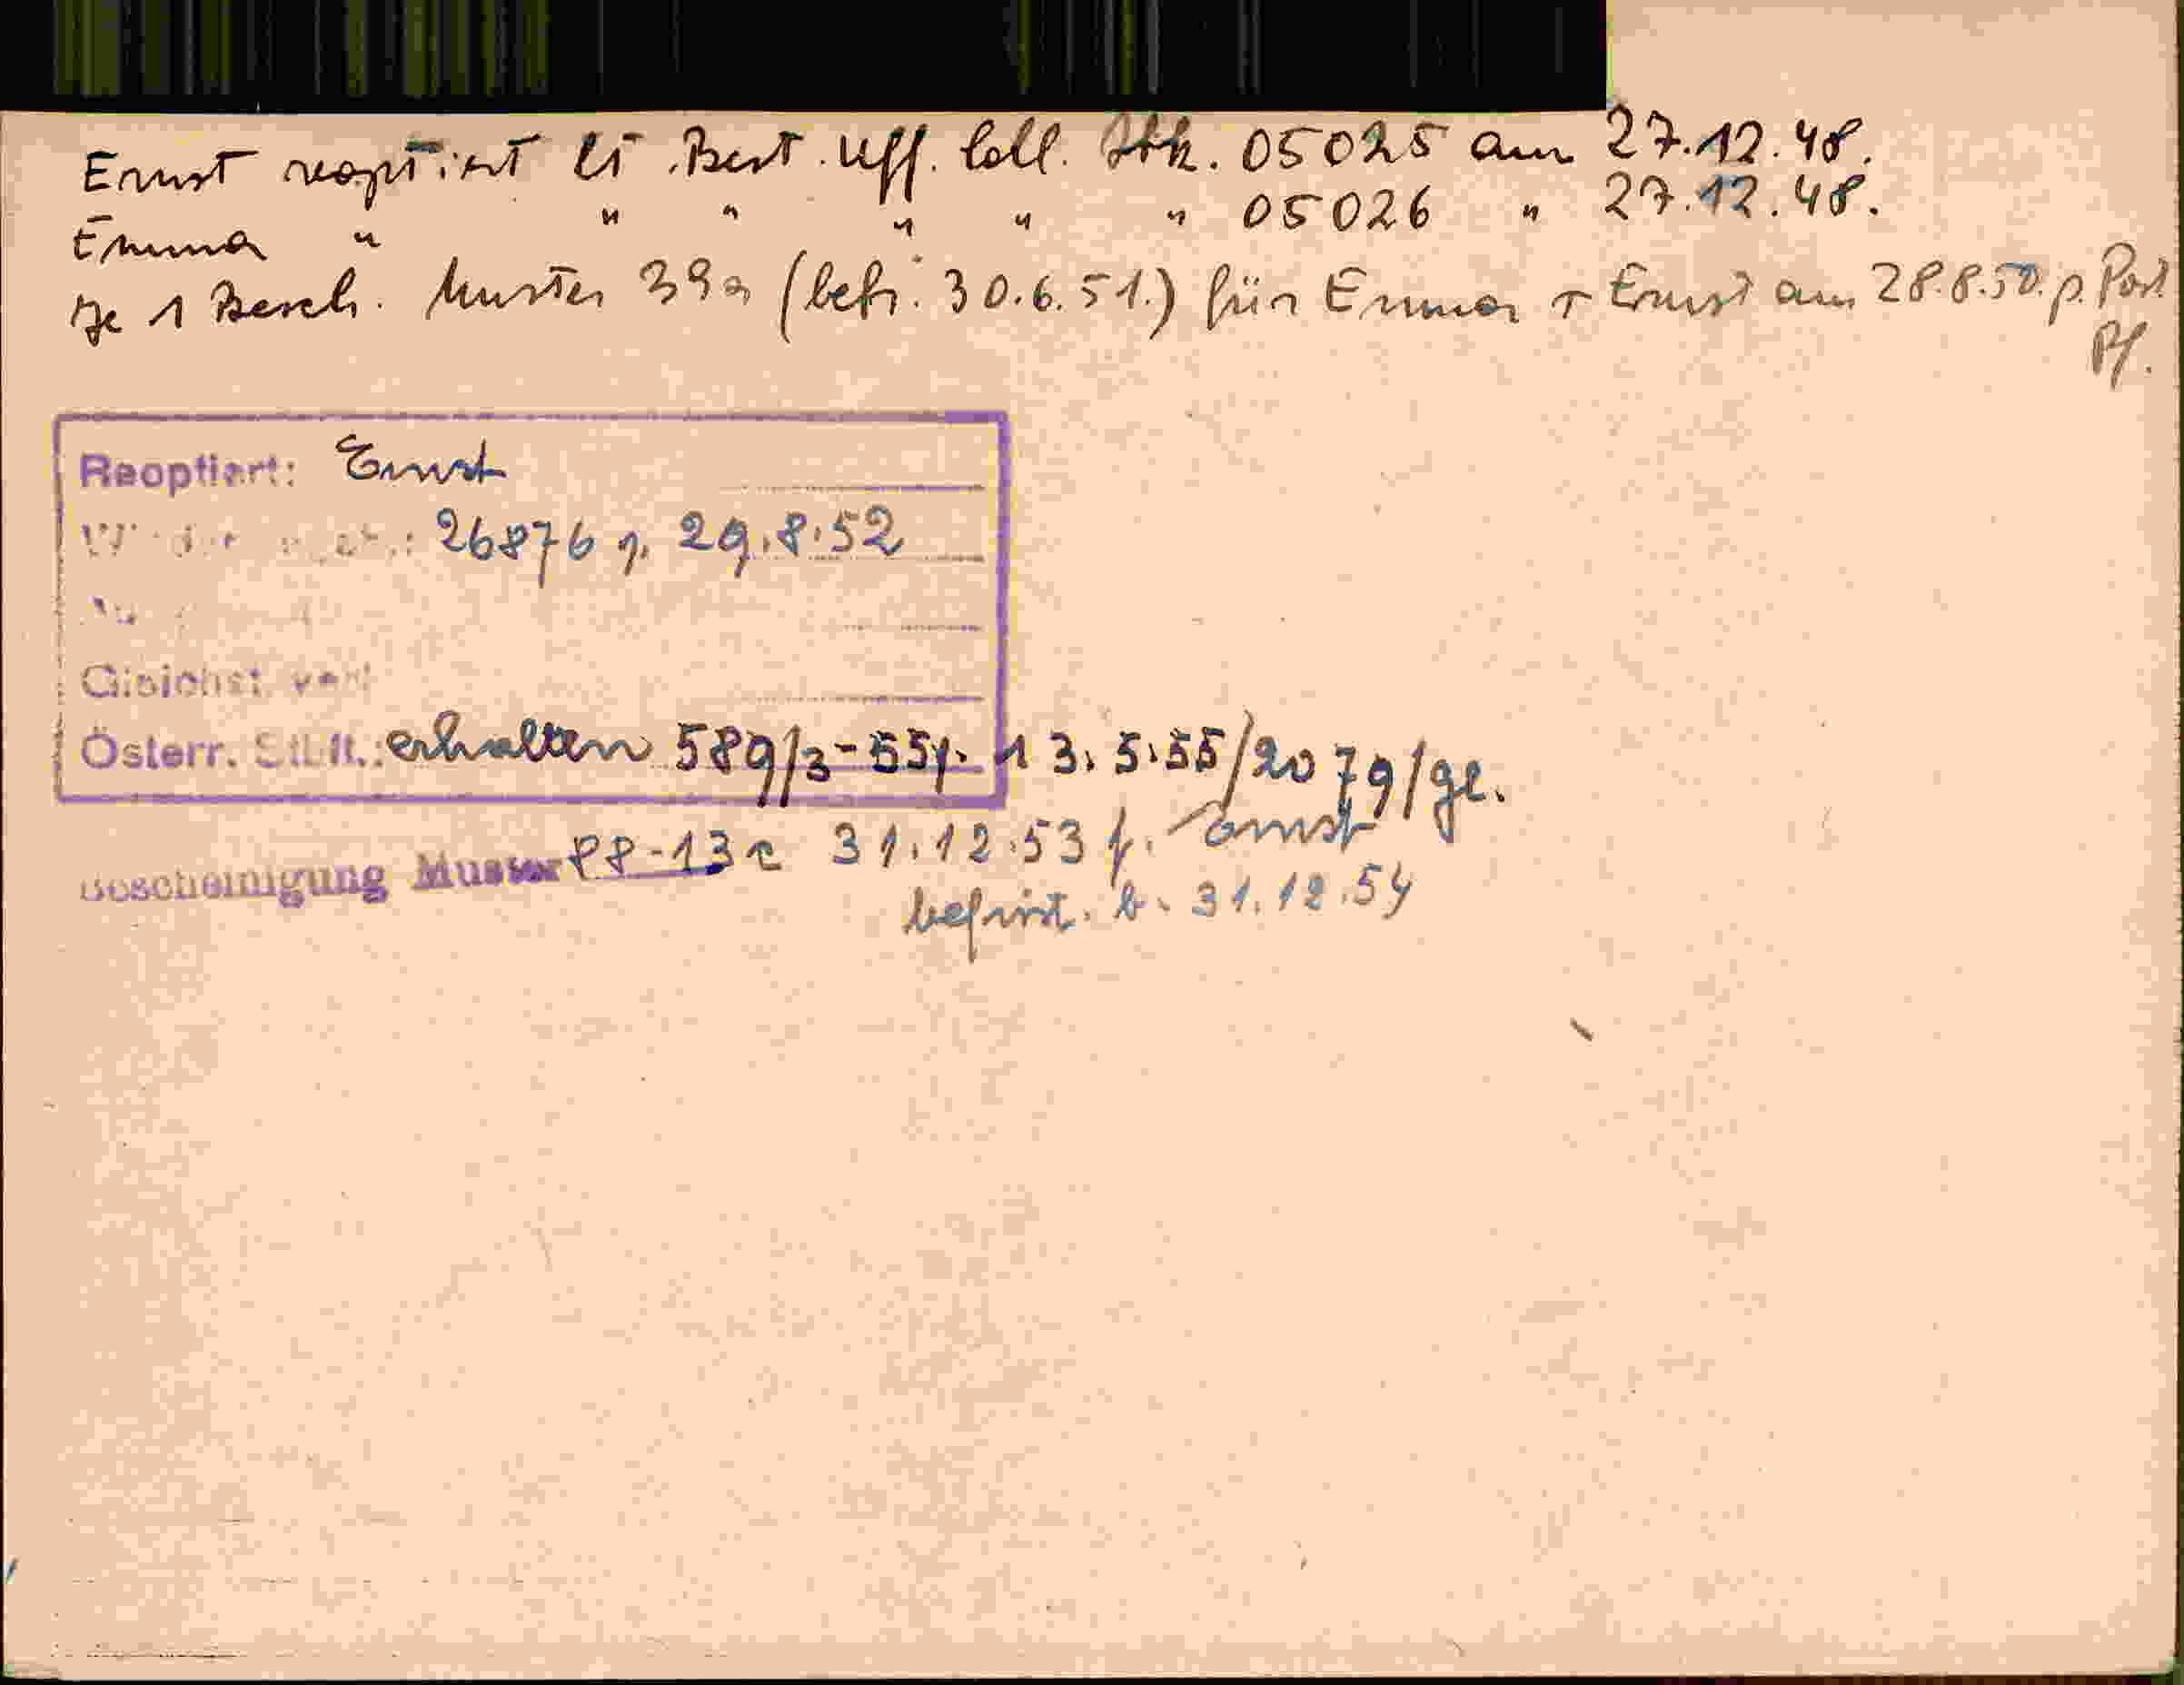 Ernst reoptiert lt. Best. Uff. Coll. Ibk. 05025 am 27.12.48.
Emma " " " " " " 05026 " 27.12.48.
Je 1 Besch. Muster 39a (befr. 30.6.51.) für Emma + Ernst am 28.8.50. p. Post
Pf.
Reoptiert: Ernst
26876 v. 29.8.52
Gleichst. verl
Österr. St.B.: erhalten 589/3-55 v. 13.5.55/2079/ge.
Bescheinigung Muster 88-13c 31.12.53 f. Ernst
befrist. b. 31.12.54